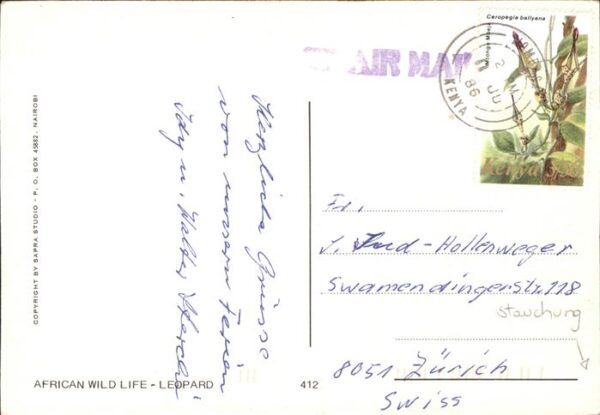 Ceropegia ballyana
AIR MAIL
KENYA
86
Kenya
Herzliche Grüsse
von unsern Ferien
Idy u. Walter
COPYRIGHT BY SAPRA STUDIO - P. O. BOX 45882. NAIROBI
Fr.
Hollenweger
Swamendingerstr. 118
Stauchung
8051 Zürich
Swiss
AFRICAN WILD LIFE - LEOPARD 412